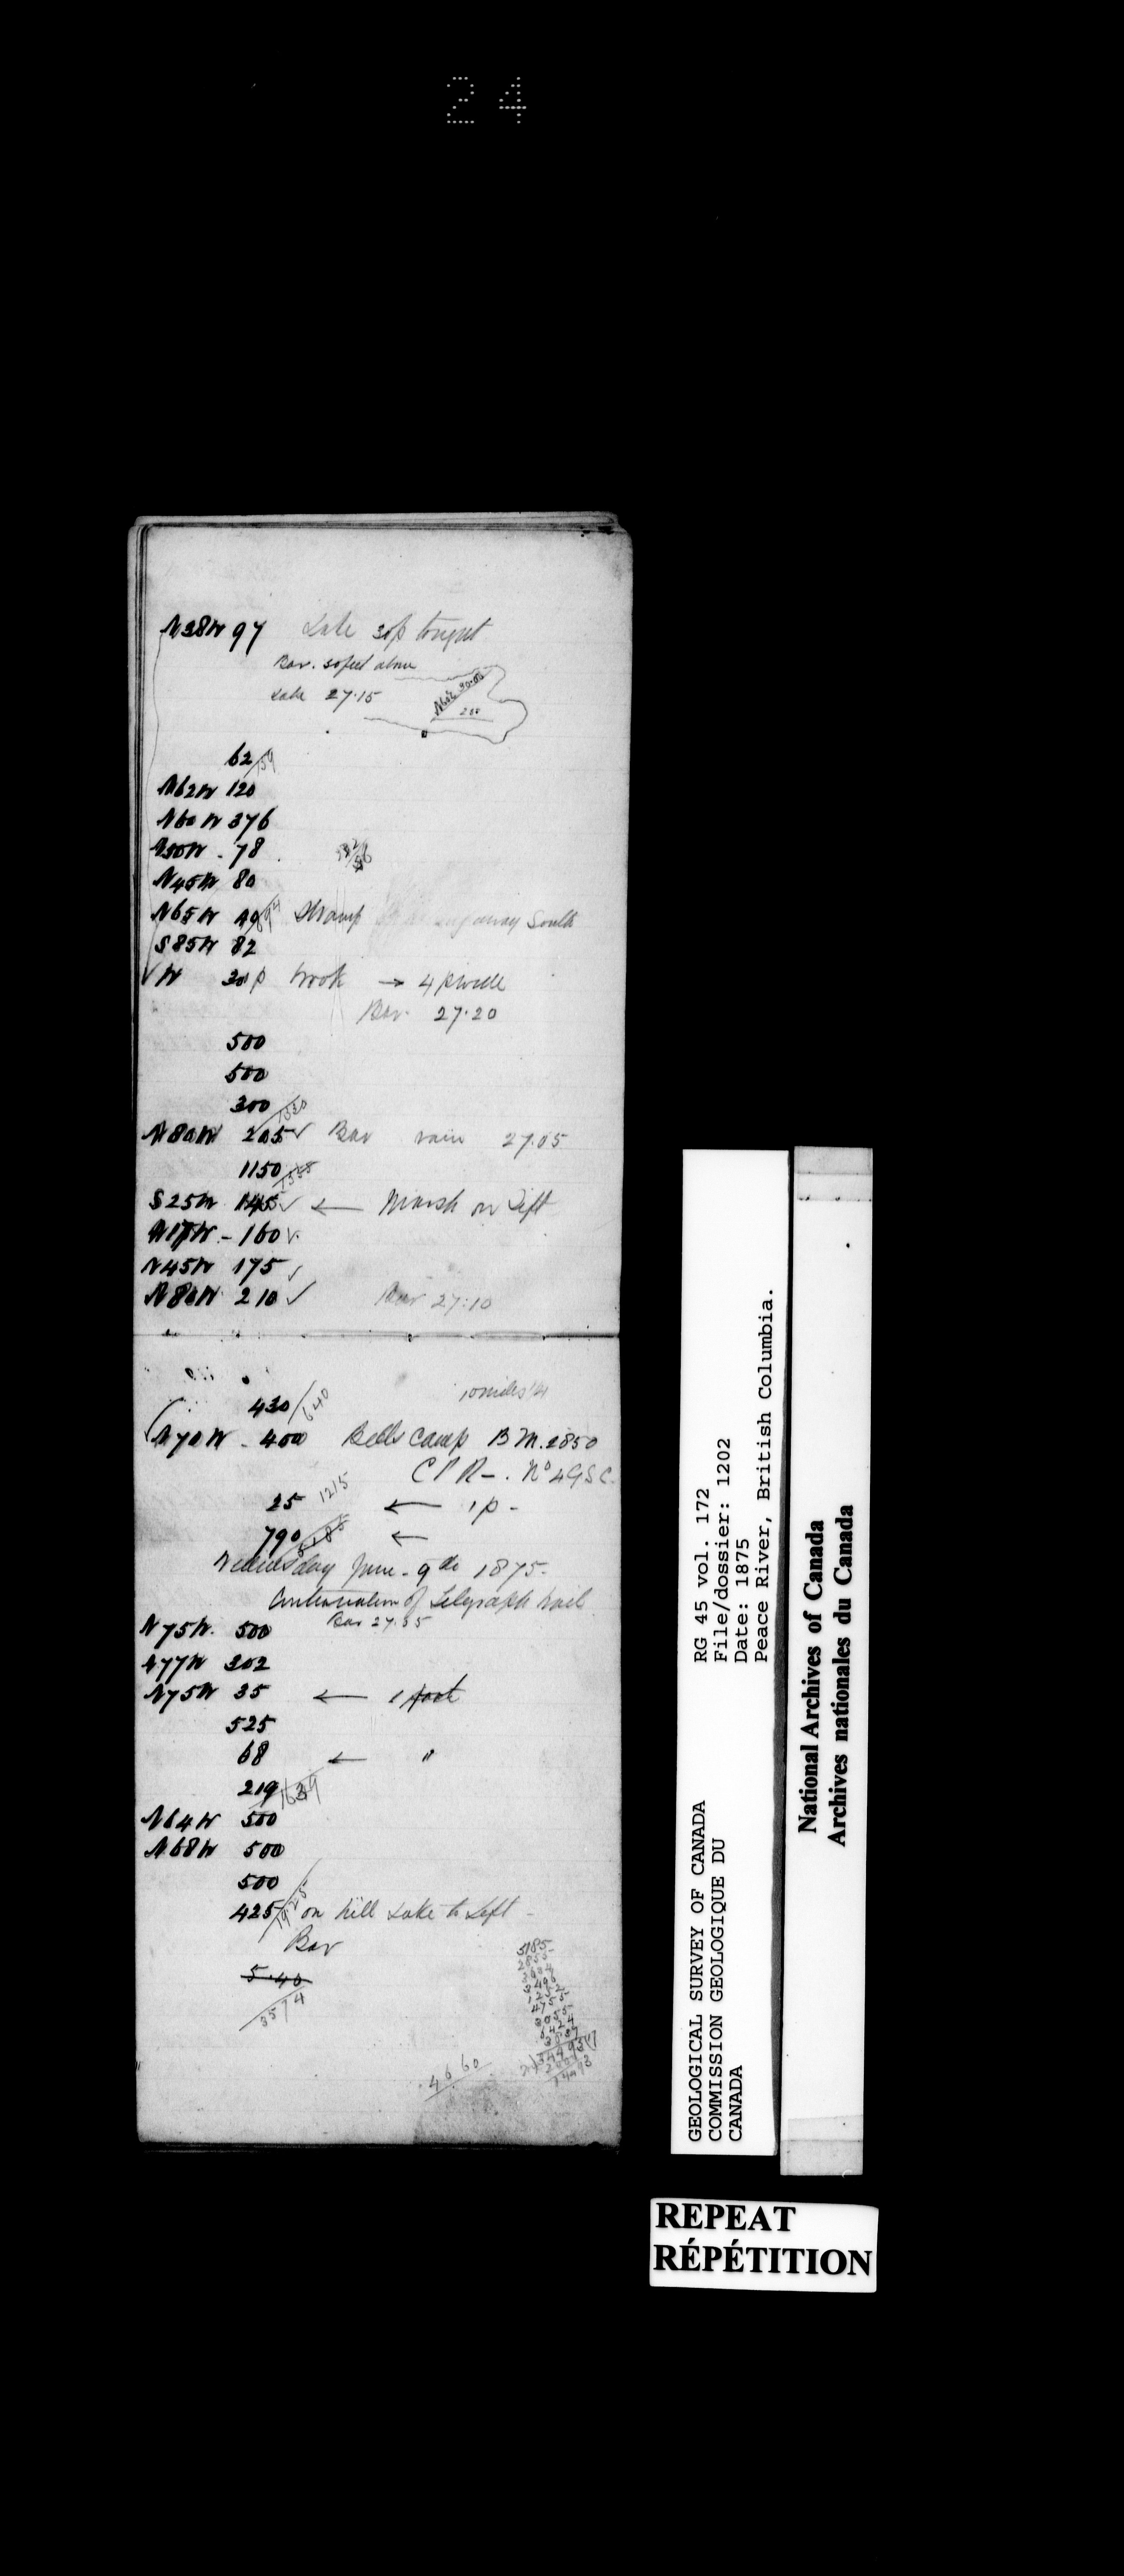 24
N38W 97 Lake 30p to right
Bar. 30 feet above
Lake 27.15
N60E 30.00
200
62/159
N62W 120
N60W 376
N50W - 78
N45W 80
N65W 49 Swamp away South
S85W 82
W 30p brook → 4p wide
Bar. 27.20
500
500
300
N80W 205 Bar rain 27.05
1150
S25W 145 ← Marsh on Left
N17W - 160
N45W 175
N80W 210 Bar 27.10
430/640
10 miles
N70W - 400 Bells Camp B M. 2850
C P R - . No 4 G S C.
25 1215 ← 1p -
790 ←
Wednesday June - 9th 1875 -
Continuation of Telegraph trail
N75W. 500 Bar 27.35
N77W 302
N75W 35 ← 1 foot
525
68 ← "
219/1649
N64W 500
N68W 500
500
425/1925 on hill Lake to Left -
Bar
5.40
3574
5185
4660
RG 45 vol. 172
File/dossier: 1202
Date: 1875
Peace River, British Columbia.
GEOLOGICAL SURVEY OF CANADA
COMMISSION GEOLOGIQUE DU
CANADA
National Archives of Canada
Archives nationales du Canada
REPEAT
RÉPÉTITION